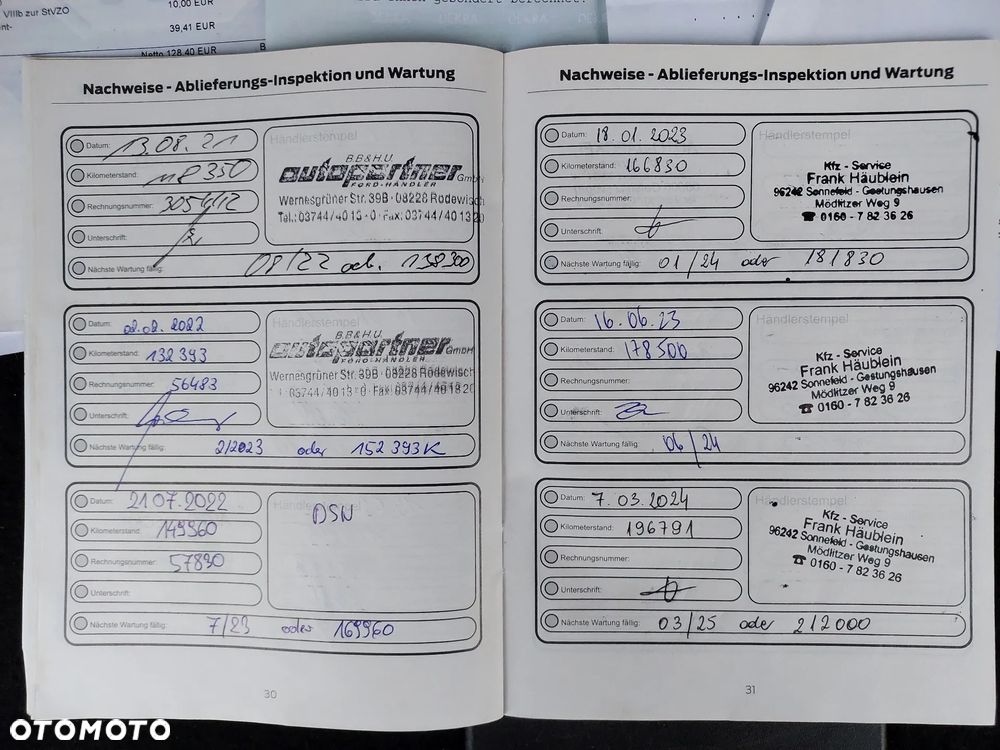 VIIIb zur StVZO
10,00 EUR
39,41 EUR
Netto 128,40 EUR
Nachweise - Ablieferungs-Inspektion und Wartung
Datum: 13.08.21
Kilometerstand: 118350
Rechnungsnummer:
Unterschrift:
Nächste Wartung fällig: 08/22 od. 138300
Händlerstempel
B.B.&H.U.
autopartner GmbH
FORD-HÄNDLER
Wernesgrüner Str. 39B · 08228 Rodewisch
Tel.: 03744/40 13-0 · Fax: 03744/40 13 20
Datum: 02.02.2022
Kilometerstand: 132393
Rechnungsnummer: 56483
Unterschrift:
Nächste Wartung fällig: 2/2023 oder 152393K
Händlerstempel
B.B.&H.U.
autopartner GmbH
FORD-HÄNDLER
Wernesgrüner Str. 39B · 08228 Rodewisch
03744/40 13-0 · Fax: 03744/40 13 20
Datum: 21.07.2022
Kilometerstand: 149960
Rechnungsnummer: 57890
Unterschrift:
Nächste Wartung fällig: 7/23 oder 169960
Händlerstempel
DSN
30
Nachweise - Ablieferungs-Inspektion und Wartung
Datum: 18.01.2023
Kilometerstand: 166830
Rechnungsnummer:
Unterschrift:
Nächste Wartung fällig: 01/24 oder 181830
Händlerstempel
Kfz - Service
Frank Häublein
96242 Sonnefeld - Gestungshausen
Mödlitzer Weg 9
☎ 0160 - 7 82 36 26
Datum: 16.06.23
Kilometerstand: 178500
Rechnungsnummer:
Unterschrift:
Nächste Wartung fällig: 06/24
Händlerstempel
Kfz - Service
Frank Häublein
96242 Sonnefeld - Gestungshausen
Mödlitzer Weg 9
☎ 0160 - 7 82 36 26
Datum: 7.03.2024
Kilometerstand: 196791
Rechnungsnummer:
Unterschrift:
Nächste Wartung fällig: 03/25 oder 212000
Händlerstempel
Kfz - Service
Frank Häublein
96242 Sonnefeld - Gestungshausen
Mödlitzer Weg 9
☎ 0160 - 7 82 36 26
31
OTOMOTO